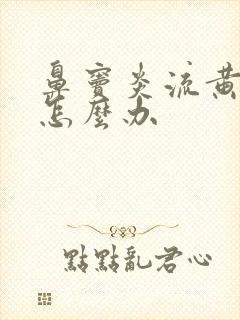 鼻竇炎流黃
怎麼办
點點亂君心